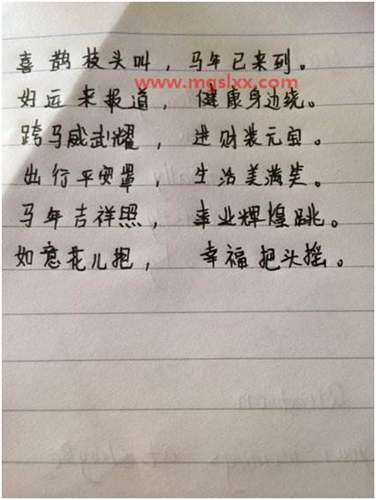 喜鹊枝头叫，马年已来到。
www.mgslxx.com
好运来报道，健康身边绕。
跨马威武耀，进财装元宝。
出行平安罩，生活美满笑。
马年吉祥照，事业辉煌跳。
如意花儿抱，幸福把头摇。